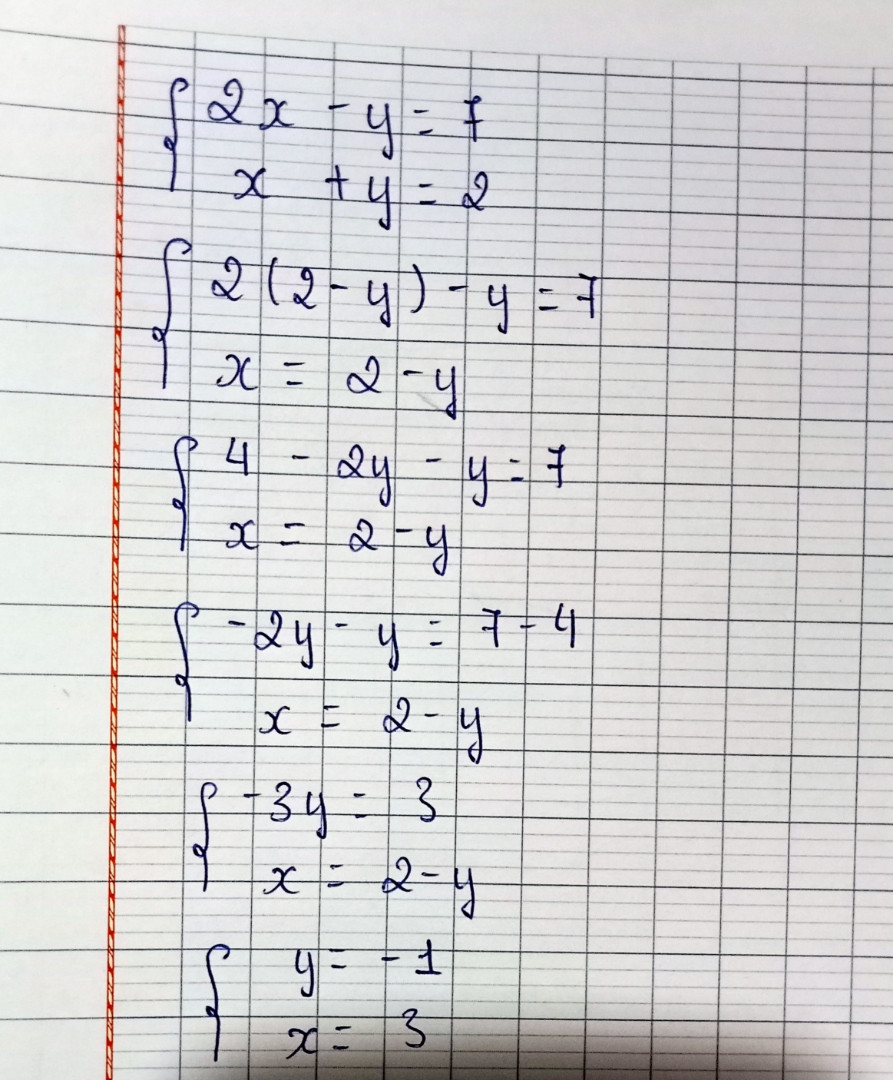 2x - y = 7
x + y = 2
2(2 - y) - y = 7
x = 2 - y
4 - 2y - y = 7
x = 2 - y
-2y - y = 7 - 4
x = 2 - y
-3y = 3
x = 2 - y
y = -1
x = 3